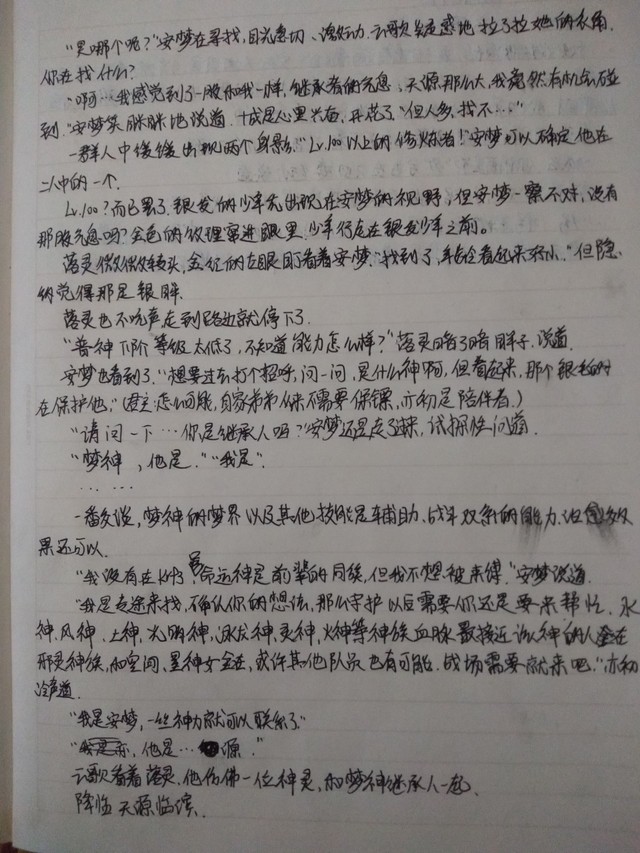 “是哪个呢？”安梦在寻找，目光急切、激动。云歌疑惑地拉了拉她的衣角，
你在找什么？
“啊…我感觉到了一股和我一样，继承者的气息，天源那么大，我竟然有机会碰
到。”安梦笑眯眯地说道，十成是心里兴奋，开花了“但人多，找不…”
一群人中缓缓出现两个身影：“Lv.100以上的修炼者！”安梦可以确定他在
二人中的一个。
Lv.100？而已罢了，银发的少年先出现在安梦的视野，但安梦一察不对，没有
那股气息吗？金色的纹理窜进眼里，少年行走在银发少年之前。
落灵微微转头，金红的左眼盯着看安梦，“找到了，年龄看起来好小。”但隐
约觉得那是银眸。
落灵也不吭声走到路边就停下了。
“普神下阶等级太低了，不知道能力怎么样？”落灵暗了暗眸子，说道。
安梦也看到了，“想要过去打个招呼，问一问，是什么神啊，但看起来，那个银毛的
在保护他。”（君主：怎么可能，自家弟弟从来不需要保镖，亦初是陪伴者。）
“请问一下…你是继承人吗？”安梦还是走了过来，试探性问道。
“梦神，他是。”“我是”。
… …
一番交谈，梦神的梦界以及其他技能是辅助、战斗双系的能力，效
果还可以。
“我没有在，命运神是前辈的同族，但我不想被束缚。”安梦说道。
“我是专途来找，确认你的想法，那么守护以后需要你还是要来帮忙，水
神、风神、土神、光明神、冰龙神、灵神、火神等神族血脉最接近的人会在
那灵神族，和空间、星神女会在，或许其他队员也有可能，战场需要就来吧。”亦初
冷声道。
“我是安梦，一丝神力就可以联系了”
“他是…源。”
云歌看着落灵，他仿佛一位神灵，和梦神继承人一起
降临天源临滨。